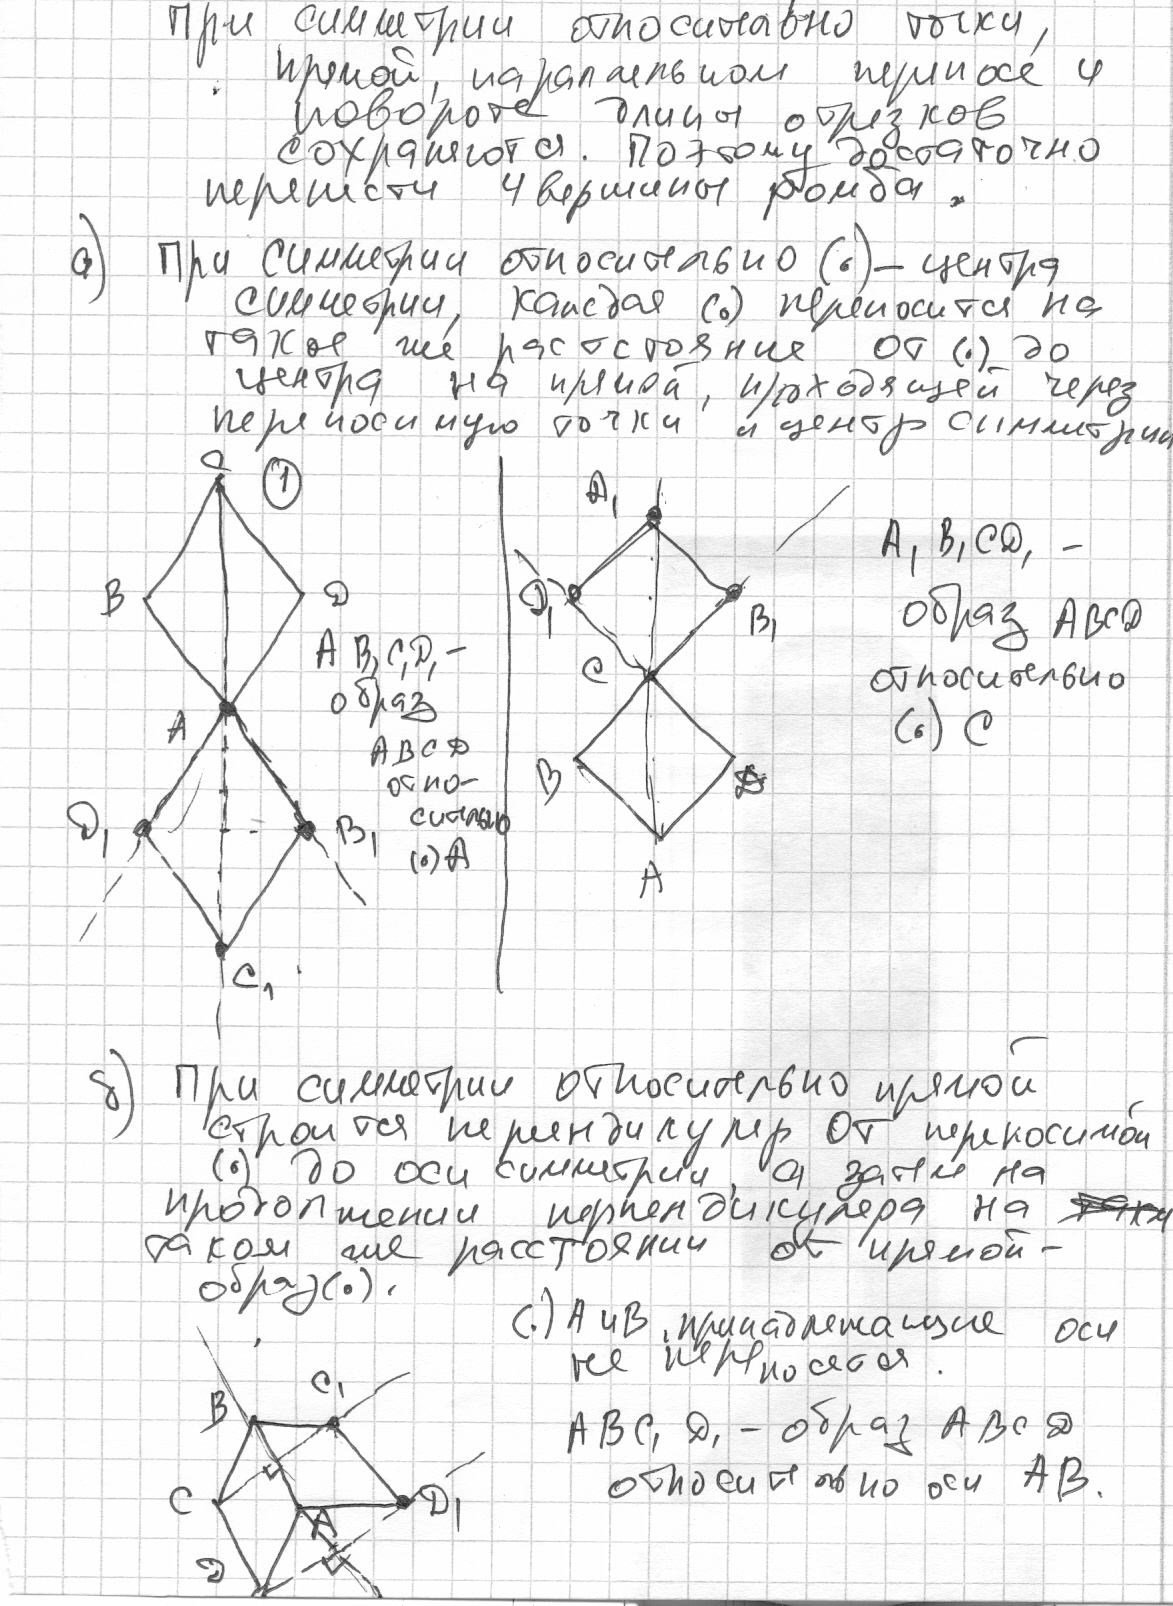 При симметрии относительно точки,
прямой, параллельном переносе и
повороте длины отрезков
сохраняются. Поэтому достаточно
перенести 4 вершины ромба.
а) При симметрии относительно (•) – центра
симметрии, каждая (•) переносится на
такое же расстояние от (•) до
центра на прямой, проходящей через
переносимую точки и центр симметрии
C
1
B
D
A B₁C₁D₁ –
образ
ABCD
отно-
сительно
(•) A
A
D₁
B₁
C₁
A₁
D₁
B₁
C
B
D
A
A₁B₁CD₁ –
образ ABCD
относительно
(•) C
б) При симметрии относительно прямой
строится перпендикуляр от переносимой
(•) до оси симметрии, а затем на
продолжении перпендикуляра на
таком же расстоянии от прямой –
образ (•).
(•) A и B, принадлежащие оси
не переносятся.
B
C₁
C
A
D₁
D
ABC₁D₁ – образ ABCD
относительно оси AB.